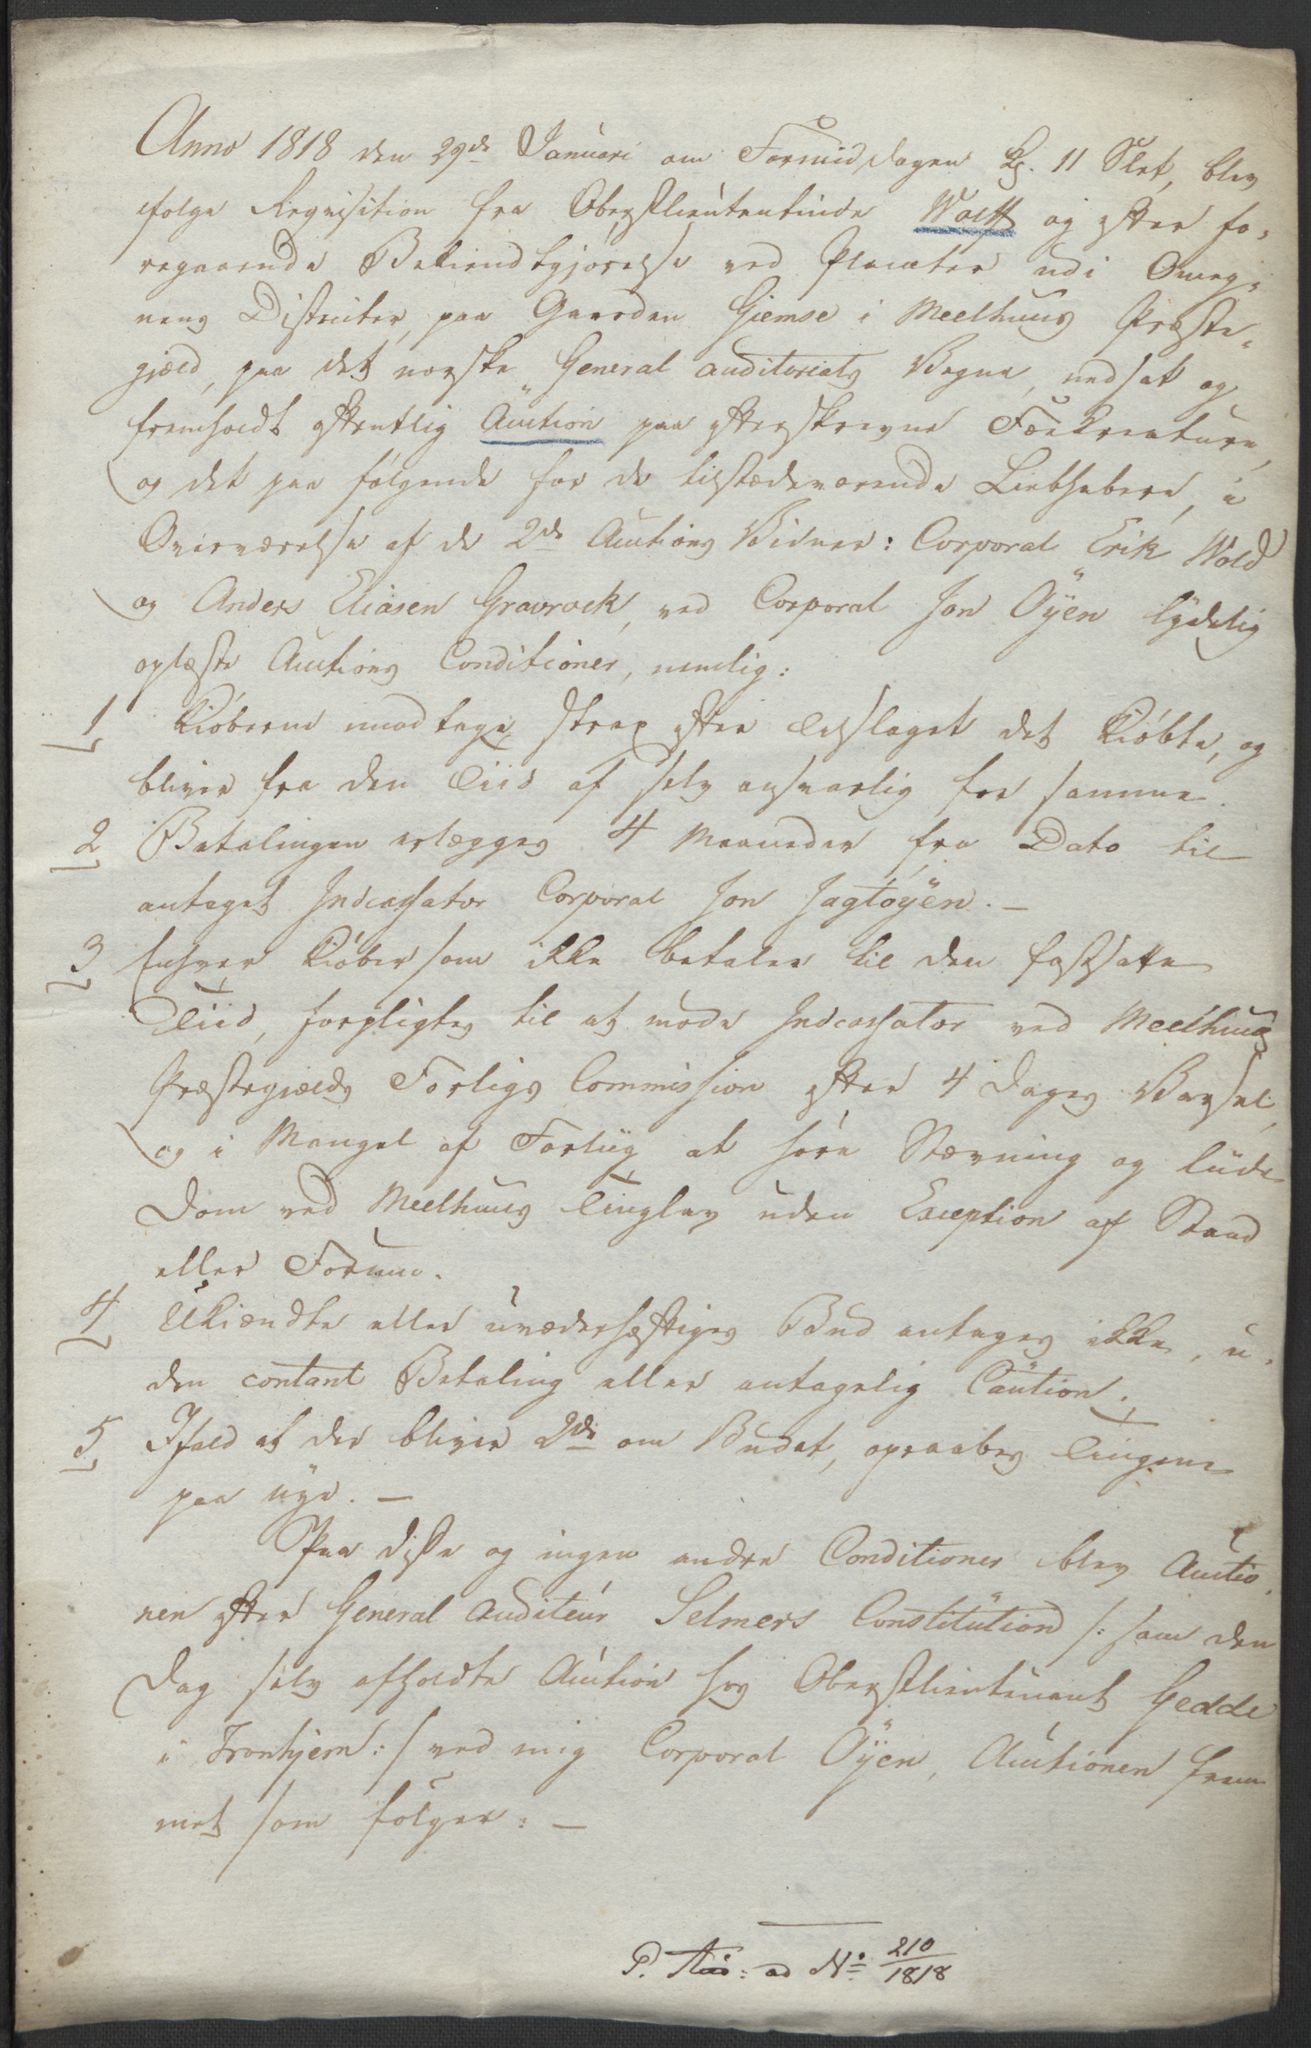 Anno 1818 den 29de Januari om Formiddagen Kl. 11 Slet, blev
efolge Requisition fra Oberstlieutentinde Wolff og efter fo-
regaaende Bekiendtgjorelse ved Placater udi Omeg-
nens Districter, paa Gaarden Giemse i Meelhuus Præste-
gjæld, paa det norske General auditoriats Vegne, nedsat og
fremholdt offentlig Auction paa efterskrevne Fæekreature,
og det paa følgende for de tilstædeværende Liebhabere, i
Overværelse af de 2de Auctions Vidner: Corporal Erik Wold
og Anders Eliasen Gravrock, ved Corporal Jon Öyen lydelig
oplæste Auctions Conditioner, nemlig:
1 Kiöberne modtage strax efter Tilslaget det Kiöbte, og
bliver fra den Tiid af selv ansvarlig for samme.
2 Betalingen erlægges 4 Maaneder fra Dato til
antaget Indcassator Corporal Jon Jagtöyen. —
3 Enhver Kiöber som ikke betaler til den fastsatte
Tiid, forpligtes til at möde Indcassator ved Meelhuus
Præstegjælds Forligs Commission efter 4 Dages Varsel,
og i Mangel af Forliig at höre Stævning og liide
Dom ved Meelhuus Tinglav uden Exception af Stand
eller Forum.
4 Ukiendte eller uvederhæftiges Bud antages ikke, u-
den contant Betaling eller antagelig Caution.
5 Ifald at der bliver 2de om Budet, opraabes Tingene
paa nye. —
Paa disse og ingen andre Conditioner blev Auctio-
nen efter General auditeur Selmers Constitution /: som den
Dag selv afholdte Auction hos Oberstlieutenant Gedde
i Tronhjem :/ ved mig Corporal Öyen, Auctionen frem-
met som fölger: —
P. ad No 210/1818